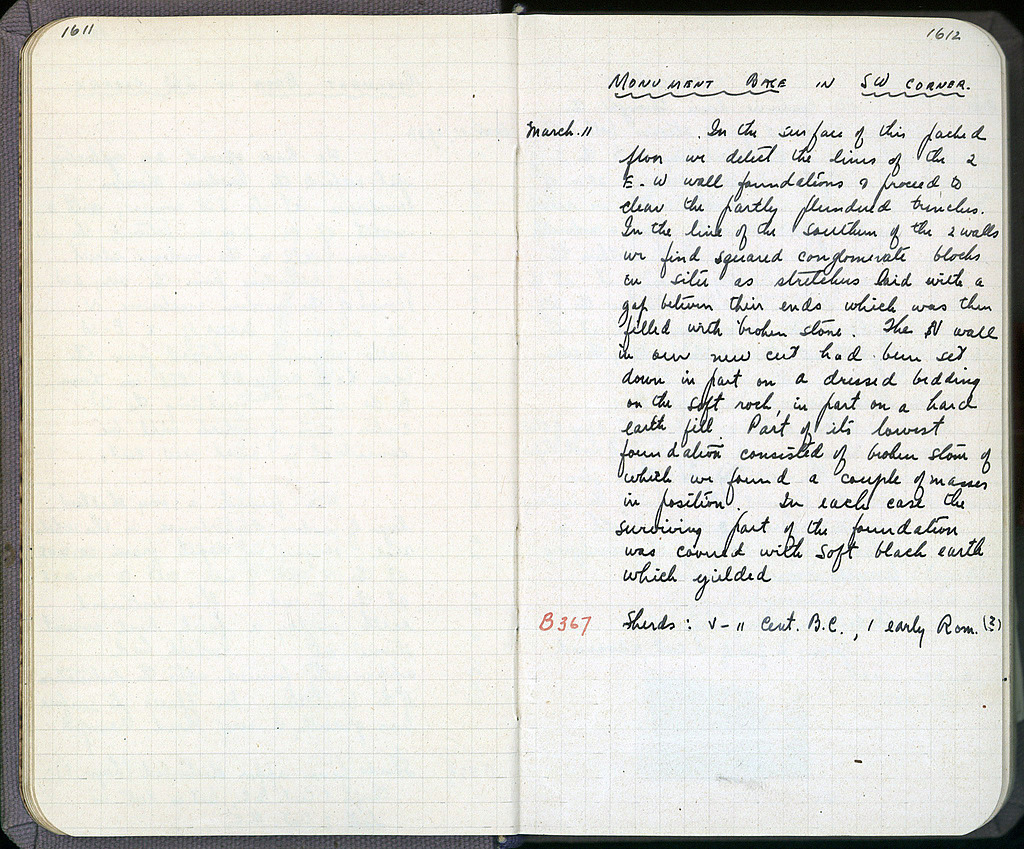 1611
1612
MONUMENT BASE IN SW CORNER.
March. 11 In the surface of this packed
floor we detect the lines of the 2
E-W wall foundations & proceed to
clear the partly plundered trenches.
In the line of the southern of the 2 walls
we find squared conglomerate blocks
in situ as stretchers laid with a
gap between their ends which was then
filled with broken stone. The N wall
in our new cut had been set
down in part on a dressed bedding
on the soft rock, in part on a hard
earth fill. Part of its lowest
foundation consisted of broken stone of
which we found a couple of masses
in position. In each case the
surviving part of the foundation
was covered with soft black earth
which yielded
B 367 Sherds: V-II Cent. B.C., 1 early Rom. (?)